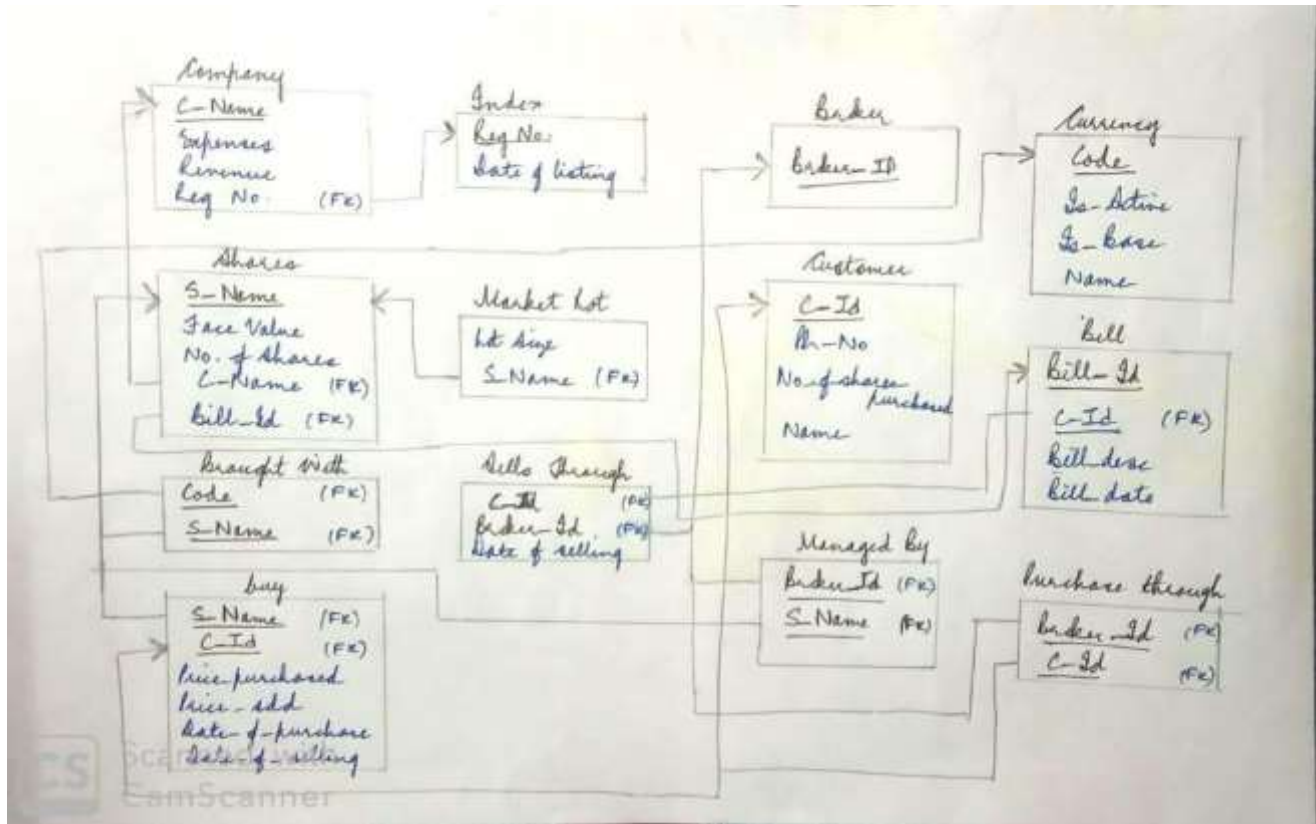 Company
C-Name
Expenses
Revenue
Reg No. (FK)
Index
Reg No.
Date of listing
Broker
Broker-ID
Currency
Code
Is-Active
Is-Base
Name
Shares
S-Name
Face Value
No. of shares
C-Name (FK)
Bill-Id (FK)
Market Lot
Lot Size
S-Name (FK)
Customer
C-Id
Ph-No
No-of-shares purchased
Name
Bill
Bill-Id
C-Id (FK)
Bill-desc
Bill-date
Brought With
Code (FK)
S-Name (FK)
Sells Through
C-Id (FK)
Broker-Id (FK)
Date of selling
Managed By
Broker-Id (FK)
S-Name (FK)
Purchase through
Broker-Id (FK)
C-Id (FK)
buy
S-Name (FK)
C-Id (FK)
Price purchased
Price-sold
Date-of-purchase
Date-of-selling
CS Scanned with
CamScanner